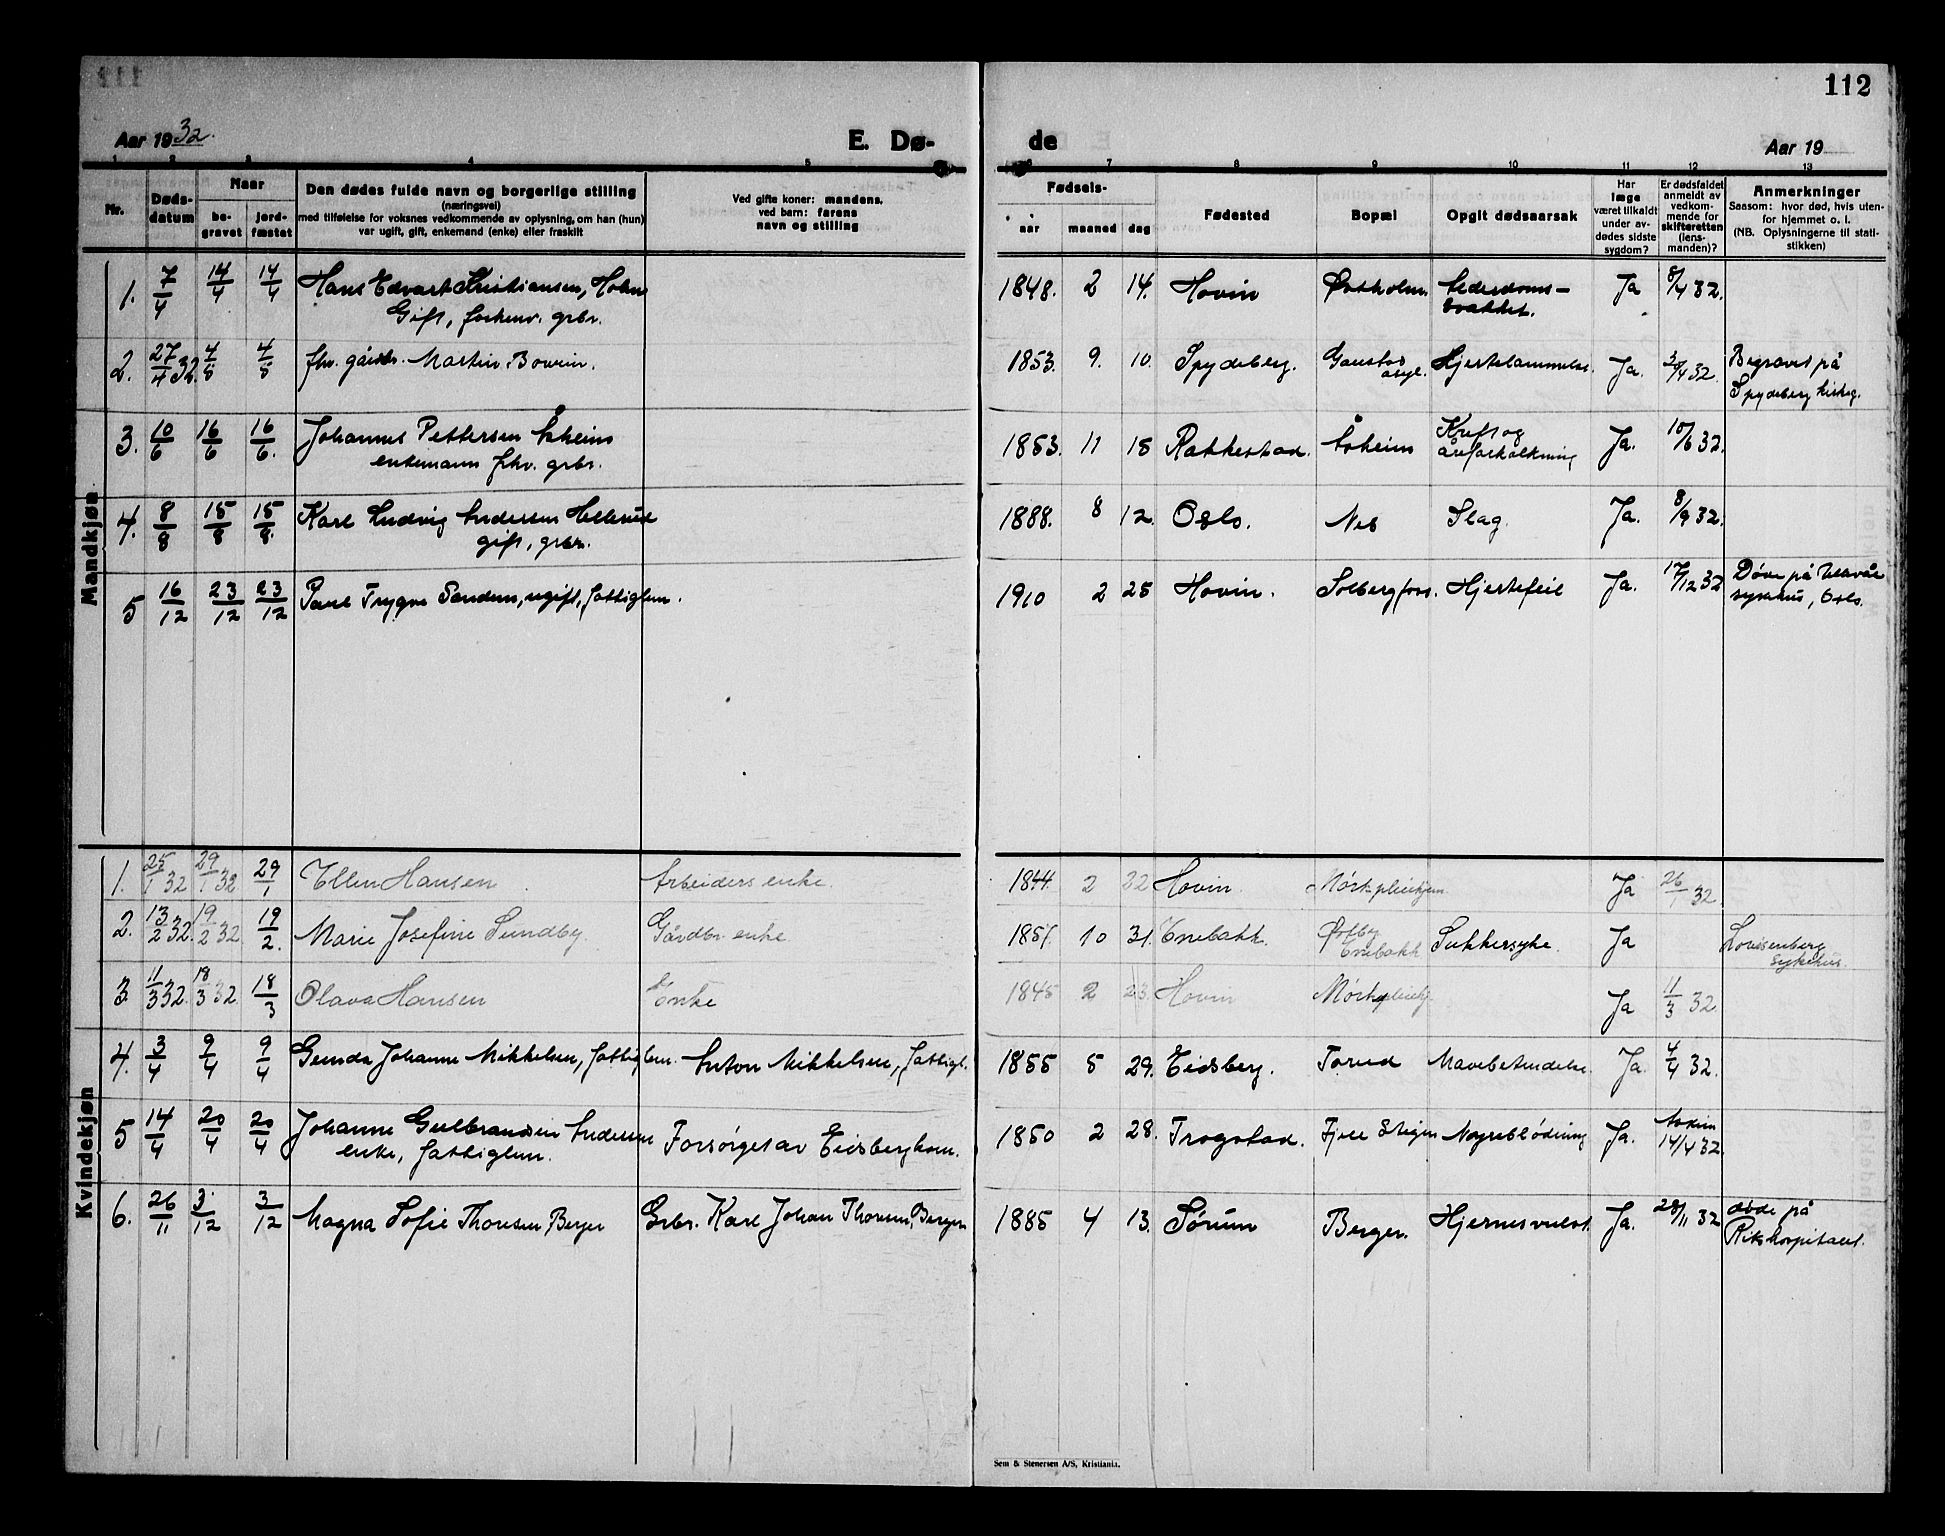 112
Aar 1932.
E. Dø-
de
Aar 19
1 2 3 4 5 6 7 8 9 10 11 12 13
Nr.
Døds-
datum
Naar
be-
gravet
jord-
fæstet
Den dødes fulde navn og borgerlige stilling
(næringsvei)
med tilføielse for voksnes vedkommende av oplysning, om han (hun)
var ugift, gift, enkemand (enke) eller fraskilt
Ved gifte koner: mandens,
ved barn: farens
navn og stilling
Fødsels-
aar maaned dag
Fødested
Bopæl
Opgit dødsaarsak
Har
læge
været tilkaldt
under av-
dødes sidste
sygdom?
Er dødsfaldet
anmeldt av
vedkom-
mende for
skifteretten
(lens-
manden)?
Anmerkninger
Saasom: hvor død, hvis uten-
for hjemmet o. l.
(NB. Oplysningerne til stati-
stikken)
Mandkjøn
1. 7/4 14/4 14/4 Hans Edvart Kristiansen, Holm 1848. 2 14. Hovin Østholm. Alderdoms- Ja 8/4 32.
Gift, forhenv. grbr. svakhet.
2. 27/4 32. 4/5 4/5 fhv. gårdbr. Martin Bovim. 1853. 9. 10. Spydeberg. Gaustad Hjertelammelse. Ja. 30/4 32. Begravet på
asyl. Spydeberg kirkeg.
3. 10/6 16/6 16/6. Johannes Pettersen Åsheim 1853. 11 15 Rakkestad. Åsheim Kreft og Ja. 10/6 32.
enkemann fhv. grbr. åreforkalkning
4. 8/8 15/8 15/8. Karl Ludvig Andersen Hellerud 1888. 8 12. Oslo. Nes Slag. Ja. 8/9 32.
gift, grbr.
5 16/12 23/12 23/12 Paul Trygve Sandem, ugift, fattiglem. 1910 2 25 Hovin. Solbergfoss. Hjertefeil Ja. 17/12 32 Døde på Ullevål
sykehus, Oslo.
Kvindekjøn
1. 25/1 32 29/1 32 29/1 Ellen Hansen Arbeiders enke. 1844. 2 22 Hovin. Mörk pleiehjem Ja 26/1 32
2. 13/2 32. 19/2 32 19/2. Marie Josefine Sundby. Gårdbr. enke. 1857. 10 31. Enebakk. Østby Sukkersyke. Ja Lovisenberg
Enebakk sykehus.
3 11/3 32. 18/3 32. 18/3 Olava Hansen Enke 1845 2 23. Hovin Mörk pleiehj. Ja 11/3 32
4. 3/4 9/4 9/4 Gunda Johanne Mikkelsen, fattiglem. Anton Mikkelsen, fattigl. 1855 5 29. Eidsberg. Torud Mavebetendelse. Ja. 4/4 32.
5 14/4 20/4 20/4 Johanne Gulbrandsen Andersen Forsørget av Eidsberg kom. 1850 2 28. Trøgstad. Fjell Stigen Nyreblödning Ja. Askim
enke, fattiglem. 14/4 32.
6. 26/11 3/12 3/12 Magna Sofie Thoresen Berger Grbr. Karl Johan Thoresen Berger 1885 4 13. Sørum Berger. Hjernesvulst. Ja. 28/11 32 døde på
Rikshospitalet.
Sem & Stenersen A/S, Kristiania.